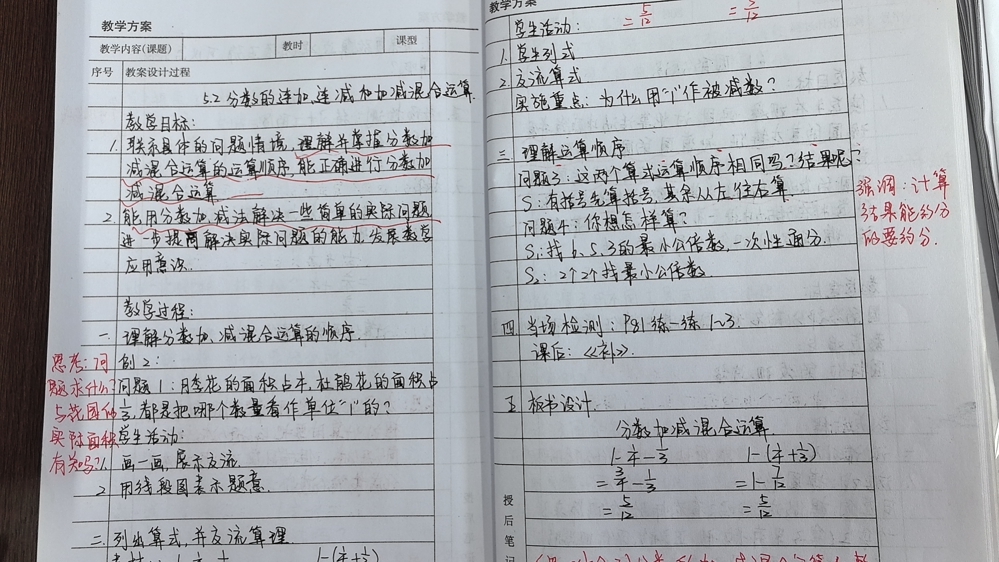 教学方案
教学内容(课题) 教时 课型
序号 教案设计过程
5.2 分数的连加、连减和加减混合运算
教学目标:
1. 联系具体的问题情境,理解并掌握分数加
减混合运算的运算顺序,能正确进行分数加
减混合运算
2. 能用分数加、减法解决一些简单的实际问题
进一步提高解决实际问题的能力,发展数学
应用意识.
教学过程:
一. 理解分数加、减混合运算的顺序.
例2:
问题1:月季花的面积占1/4,杜鹃花的面积占
1/3,都是把哪个数量看作单位"1"的?
学生活动:
1. 画一画,展示交流.
2. 用线段图表示题意.
二. 列出算式,并交流算理.
1-(1/4+1/3)
思考:问
题求什么?
与花园的
实际面积
有关吗?
教学方案
=5/12 =5/12
学生活动:
1. 学生列式
2. 交流算式
实施重点:为什么用"1"作被减数?
三. 理解运算顺序
问题3:这两个算式运算顺序相同吗?结果呢?
S:有括号先算括号,其余从左往右算.
问题4:你想怎样算?
S1:找6、5、3的最小公倍数,一次性通分.
S2:2个2个找最小公倍数.
四. 当场检测:P81 练一练 1~3.
课后:《补》.
五. 板书设计
分数加减混合运算
1-1/4-1/3 1-(1/4+1/3)
=3/4-1/3 =1-7/12
=5/12 =5/12
强调:计算
结果能约分
的要约分.
授
后
笔
记